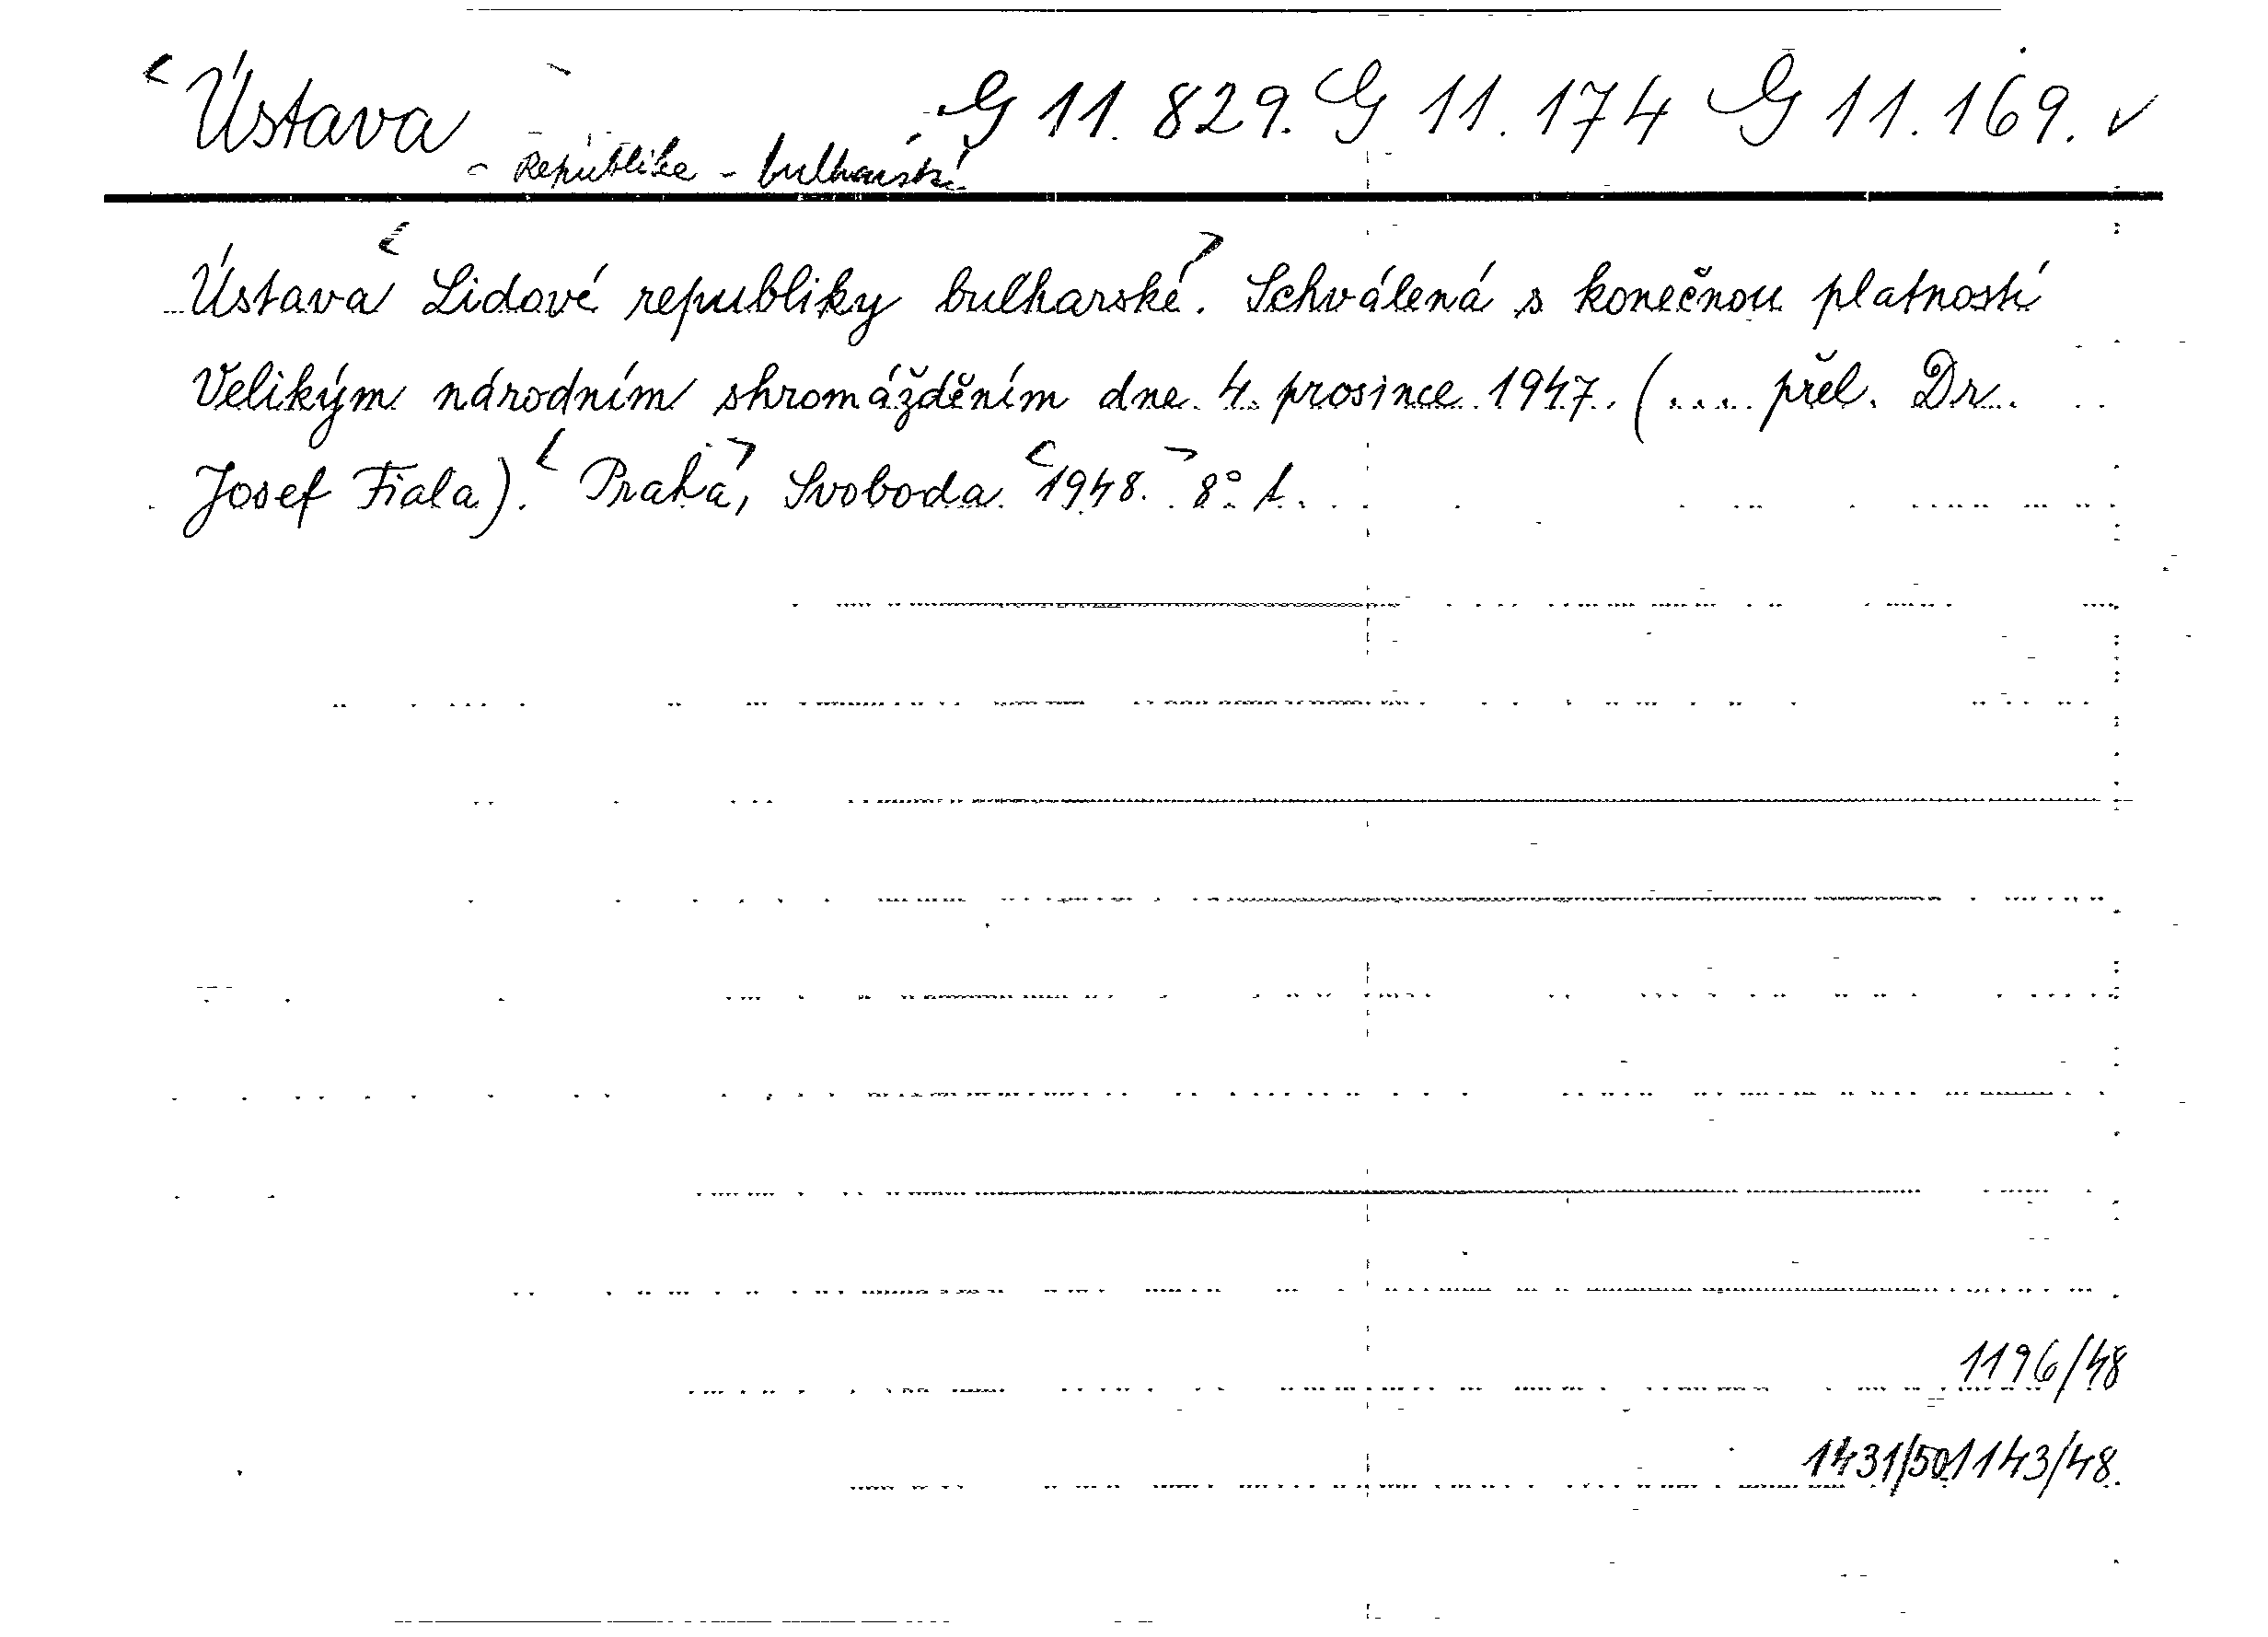 Ústava G 11.829. G 11.174 G 11.169. ✓
- Republika - bulharská
Ústava Lidové republiky bulharské. Schválená s konečnou platností
Velikým národním shromážděním dne 4. prosince 1947. (.... přel. Dr.
Josef Fiala). Praha, Svoboda 1948. 8°.
1196/48
1431/50 1143/48.